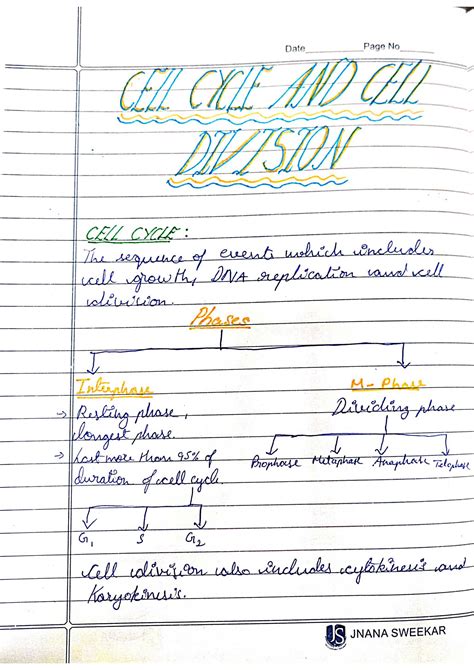 Date          Page No
CELL CYCLE AND CELL
DIVISION
CELL CYCLE :
The sequence of events which includes
cell growth, DNA replication and cell
division.
Phases
Interphase
M- Phase
→ Resting phase,
longest phase.
→ Last more than 95% of
duration of cell cycle.
Dividing phase
Prophase Metaphase Anaphase Telophase
G1 S G2
Cell division also includes cytokinesis and
Karyokinesis.
JS JNANA SWEEKAR